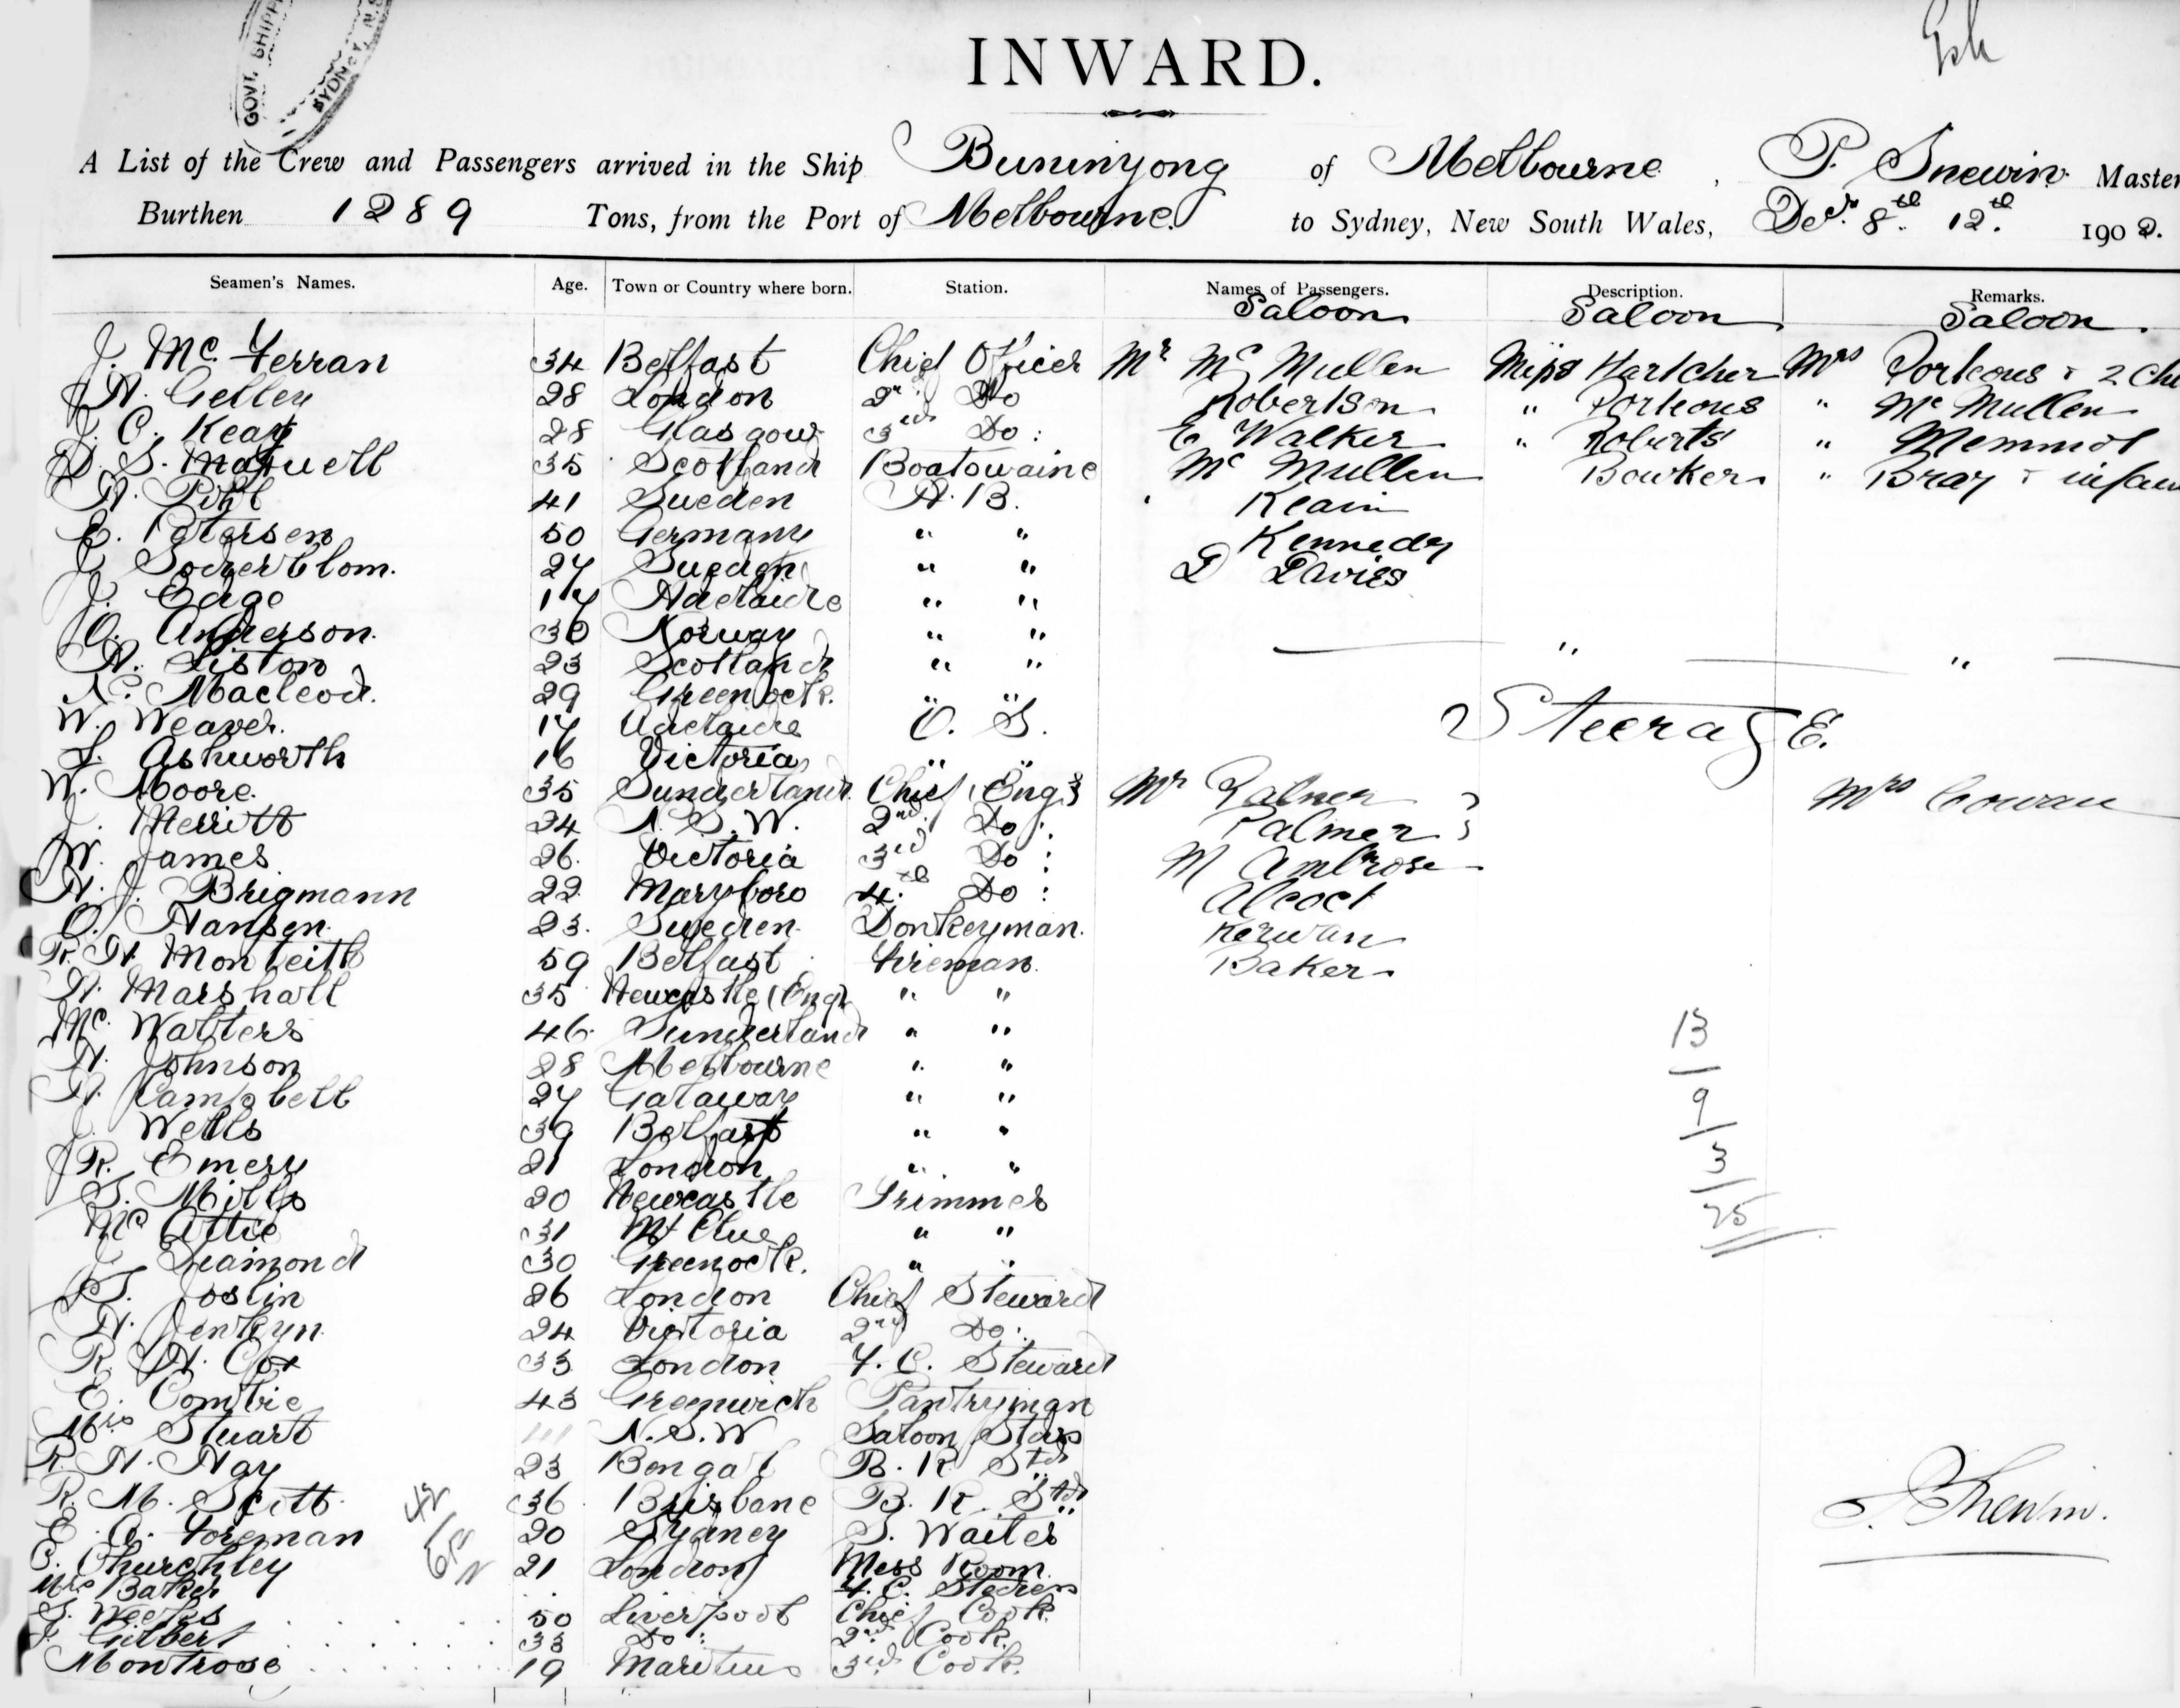 GOVT. SHIPP
SYDNEY, N.S.
INWARD.
A List of the Crew and Passengers arrived in the Ship Buninyong of Melbourne, P. Snewin Master
Burthen 1289 Tons, from the Port of Melbourne to Sydney, New South Wales, Decr. 8th 12th 1902.
Seamen's Names. Age. Town or Country where born. Station. Names of Passengers. Description. Remarks.
Saloon Saloon Saloon.
J. Mc. Ferran 34 Belfast Chief Officer Mr Mc Mullen Miss Hartcher Mrs Porteous & 2 Chi
H. Gelley 28 London 2nd Do Robertson " Porteous " Mc Mullen
J. C. Keay 28 Glasgow 3rd Do: E Walker " Roberts " Memmot
D. S. Maxwell 35 Scotland Boatswaine Mc Mullen Bowker " Bray & infan
H. Pihl 41 Sweden A.B. Keain
E. Petersen 50 Germany " " Kennedy
Soderblom. 27 Sweden " " D Davies
J. Edge 17 Adelaide " "
O. Anderson. 30 Norway " "
H. Liston 23 Scotland " " " "
N. Macleod. 29 Greenock. " "
Steerage.
W. Weaver. 17 Adelaide O. S.
L. Ashworth 16 Victoria " "
W. Moore. 35 Sunderland Chief Engr Mr Palmer } Mrs Cowan
J. Merritt 24 N.S.W. 2nd Do: Palmer }
W. James 26. Victoria 3rd Do: M Ambrose
H. J. Brigmann 22 Maryboro 4th Do: Alcock
O. Hansen. 23. Sweden Donkeyman. Kerwan
R. H. Monteith 59 Belfast Fireman. Baker
H. Marshall 35 Newcastle (Eng) " "
Mc. Walters 46. Sunderland " "
H. Johnson 28 Melbourne " "
H. Campbell 27 Galaway " "
J. Wells 39 Belfast " "
J R. Emery 21 London " "
S. Mills 20 Newcastle Trimmer
Mc Attie 31 " "
J. Diamond 30 Greenock. " "
Joslin 26 London Chief Steward
H. Jenkyn 24 Victoria 2nd Do:
R. H. Cox 33 London F. C. Steward
E. Combie 43 Greenwich Pantryman
Mrs Stuart N.S.W Saloon Stdss
R. H. Hay 23 Bengal B. R Std
R. M. Scott. 36 Brisbane B. R. Std
E. A. Foreman 20 Sydney S. Waiter
C. Churchley 21 London Mess Room.
Mrs Baker F. C. Stdess
S. Weekes 50 Liverpool Chief Cook.
F. Gilbert 33 Do: 2nd Cook.
Montrose 19 Maritius 3rd Cook.
13
9
3
25
42
P. Snewin.